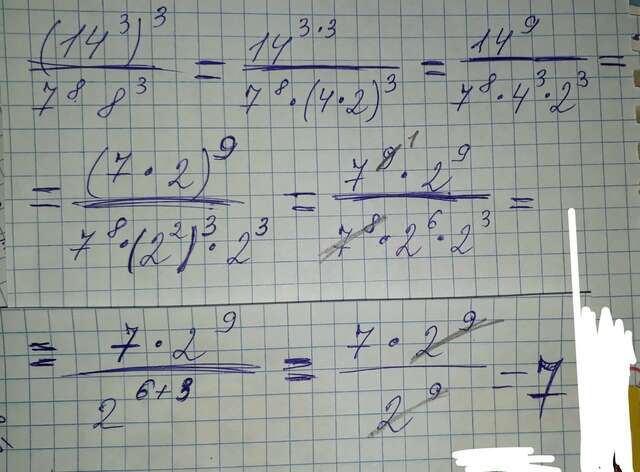 (14³)³ / 7⁸ 8³ = 14³·³ / 7⁸·(4·2)³ = 14⁹ / 7⁸·4³·2³ =
= (7·2)⁹ / 7⁸·(2²)³·2³ = 7⁹ ¹·2⁹ / 7⁸·2⁶·2³ =
= 7·2⁹ / 2⁶⁺³ = 7·2⁹ / 2⁹ = 7